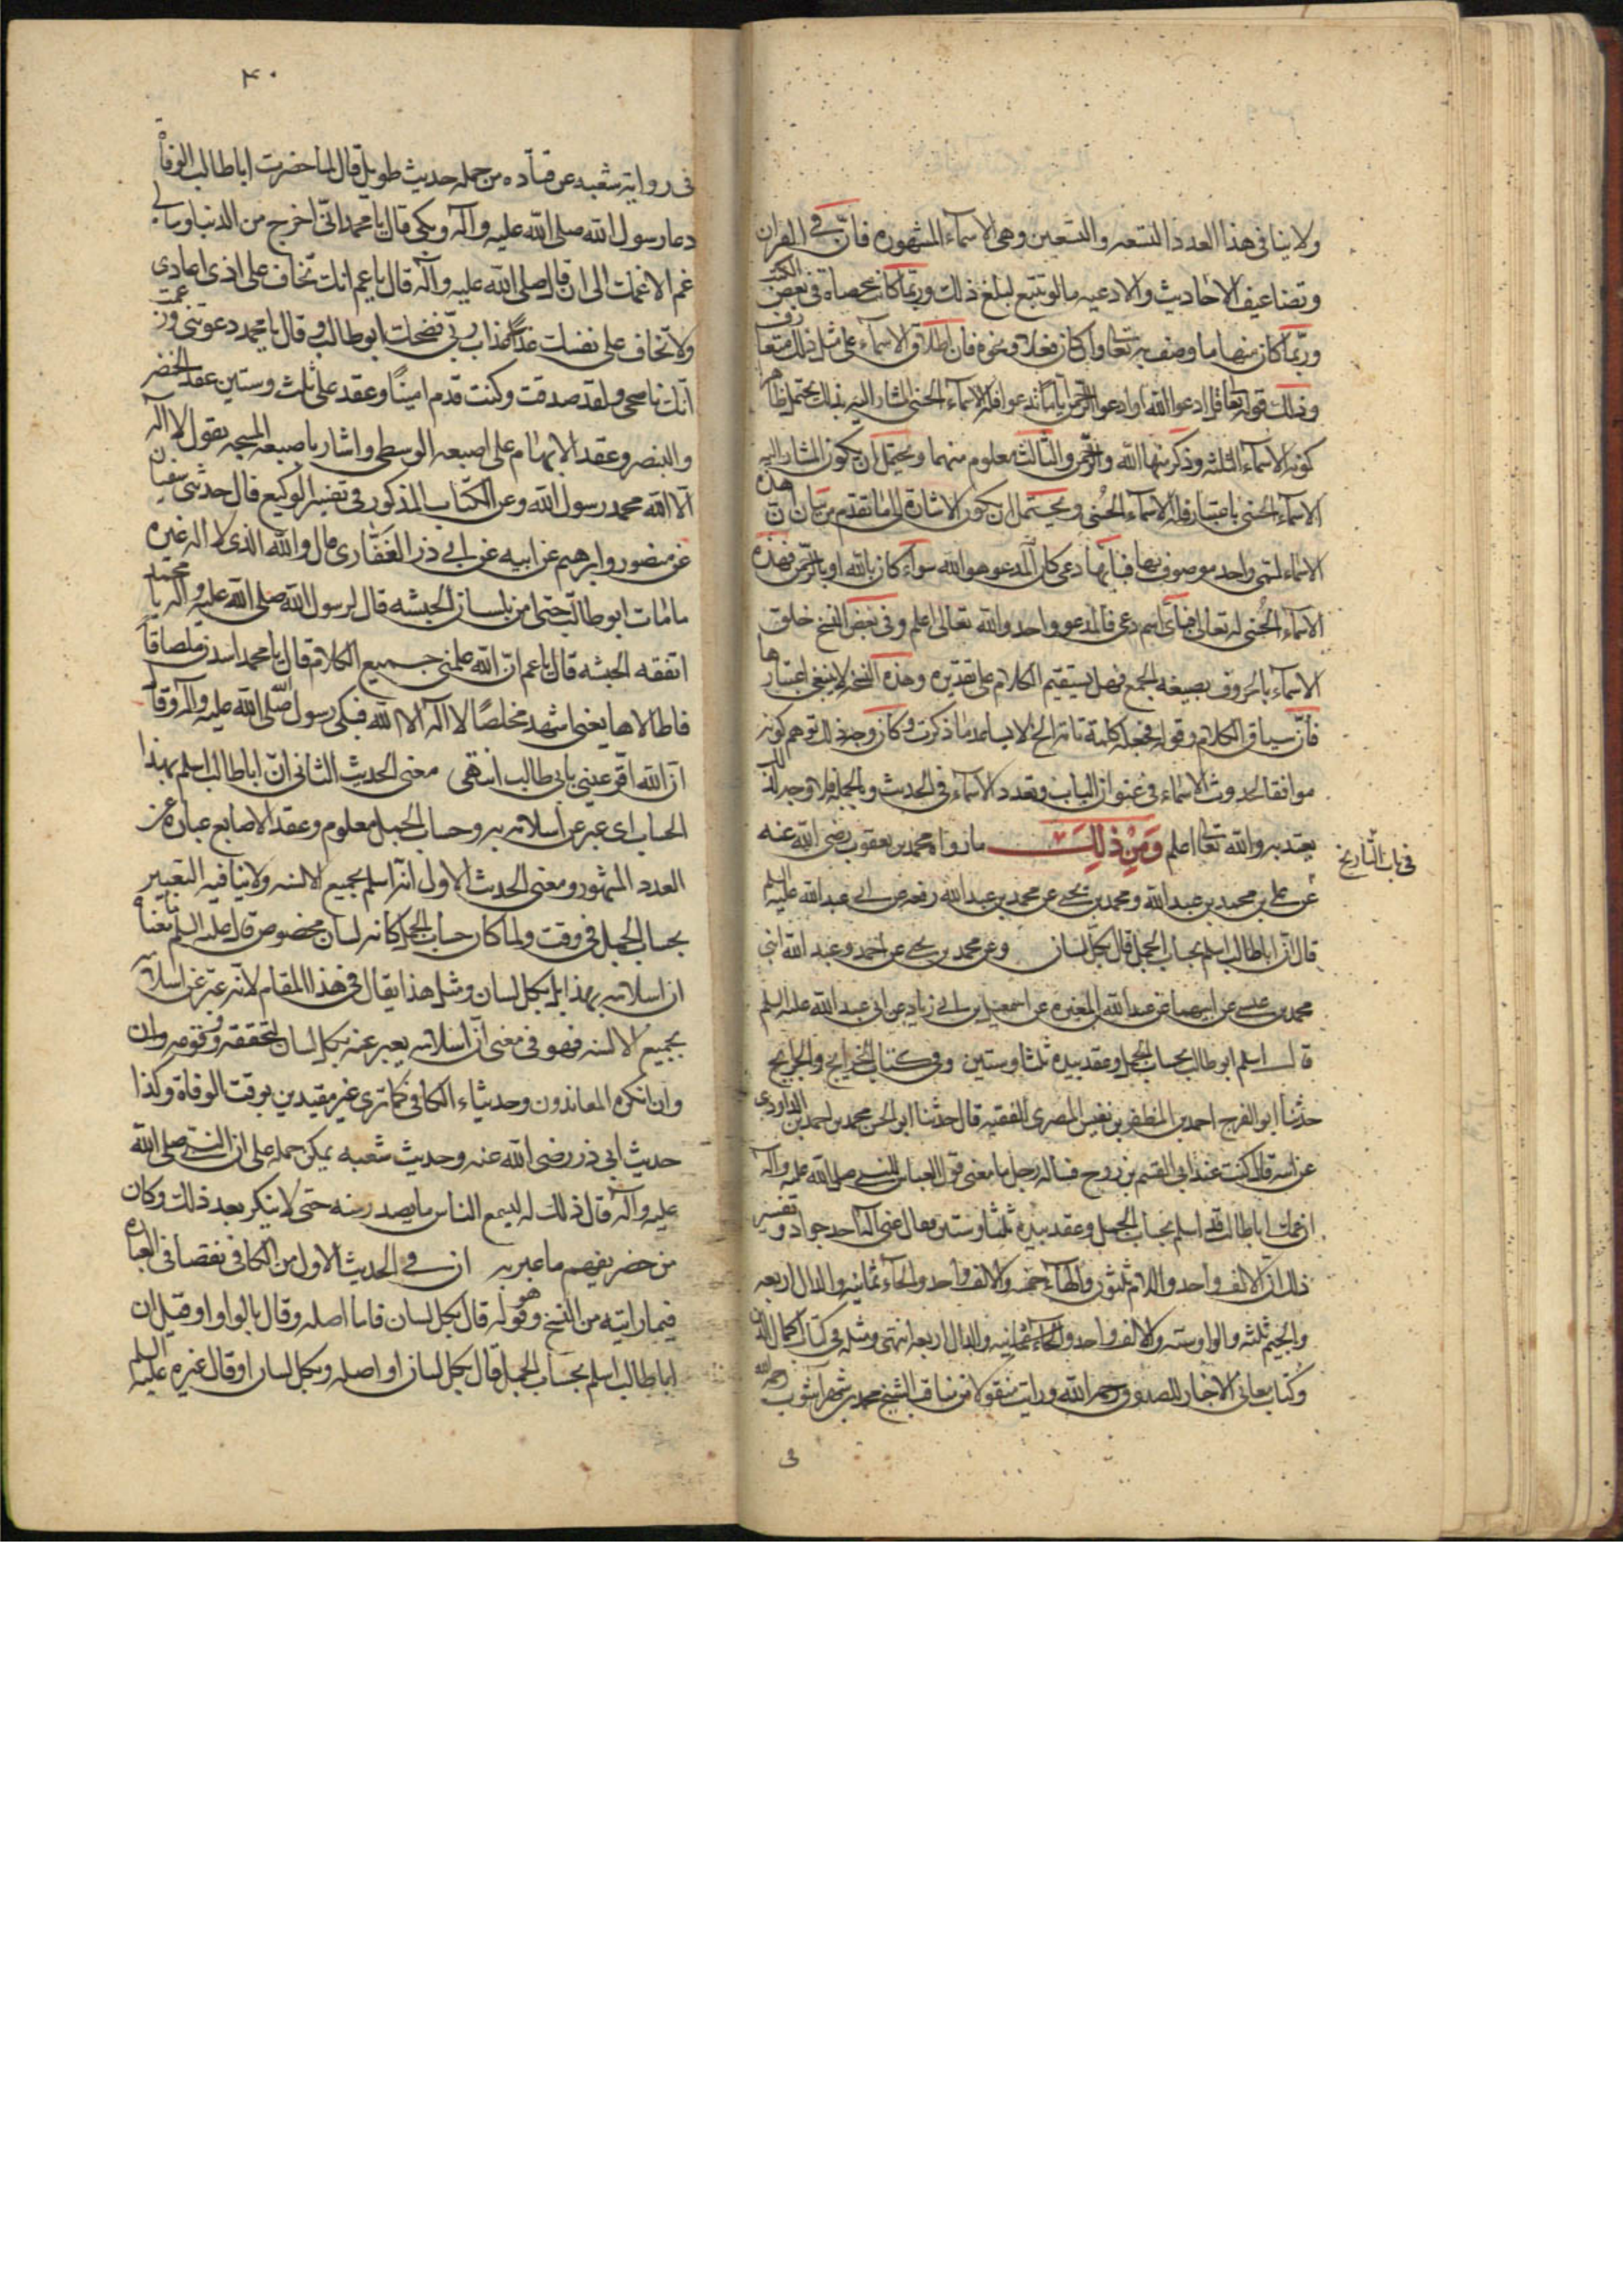 ولا ينافى هذا العدد التسعه والتسعين وهى الاسماء المشهوره فان فى القران
وتضاعيف الاحاديث والادعيه ما لو تتبع لبلغ ذلك وربما كانت محصاة فى بعض الكتب
وربما كان منها ما وصف به تعالى وان كان فعلا ونحوه فان اطلاق الاسماء على مثل ذلك متعارف
وذلك قوله تعالى قل ادعوا الله او ادعوا الرحمن ايا ما تدعوا فله الاسماء الحسنى المشار اليه بذلك يحتمل
كونه الاسماء الثلثه وذكر منها الله والرحمن والثالث معلوم منهما ويحتمل ان يكون المشار اليه
الاسماء الحسنى باعتبار فله الاسماء الحسنى ويحتمل ان يكون الاشارة الى ما تقدم من بيان ان هذه
الاسماء لمسمى واحد موصوف بها فبايها دعى كان المدعو هو الله سواء كان بالله او بالرحمن فهذه
الاسماء الحسنى له تعالى فباى اسم دعى فالمدعو واحد والله تعالى اعلم وفى بعض النسخ خلق
الاسماء بالحروف بصيغه الجمع فهل يستقيم الكلام على تقديره وهذه النسخه لا ينبغى اعتبارها
فان سياق الكلام وقوله فجعله كلمة تامة الخ لا يساعد ما ذكرت وكان وجه ذلك توهم كونه
موافقا لحدوث الاسماء فى عنوان الباب وتعدد الاسماء فى الحديث وبالجمله فلا وجه له
يعتد به والله تعالى اعلم وَمِنْ ذٰلِكَ ما رواه محمد بن يعقوب رضى الله عنه
فى باب التاريخ
عن على بن محمد بن عبد الله ومحمد بن يحيى عن محمد بن عبد الله رفعه عن ابى عبد الله عليه السلم
قال ان اباطالب اسلم بحساب الجمل قال بكل لسان وعن محمد بن يحيى عن احمد وعبد الله ابنى
محمد بن عيسى عن ابيهما عن عبد الله بن المغيره عن اسمعيل بن ابى زياد عن ابى عبد الله عليه السلم
قال اسلم ابو طالب بحساب الجمل وعقد بيده ثلثا وستين وفى كتاب الخرايج والجرايح
حدثنا ابو الفرج احمد بن المظفر بن نفيس المصرى الفقيه قال حدثنا ابو الحسن محمد بن احمد بن الداودى
عن ابيه قال كنت عند ابى القسم بن روح فساله رجل ما معنى قول العباس للنبى صلى الله عليه وآله
ان عمك اباطالب قد اسلم بحساب الجمل وعقد بيده ثلثا وستين فقال عنى اله احد جواد وتفسير
ذلك ان الالف واحد واللام ثلثون والهاء خمسه والالف واحد والحاء ثمانيه والدال اربعه
والجيم ثلثه والواو سته والالف واحد والدال اربعه انتهى ومثله فى كتاب اكمال الدين
وكتاب معانى الاخبار للصدوق رحمه الله ورايت منقولا من مناقب الشيخ محمد بن شهراشوب رحمه الله
فى
۴۰
فى روايه شعبه عن قتاده من جمله حديث طويل قال لما حضرت اباطالب الوفاة
دعا رسول الله صلى الله عليه وآله وبكى قال يا محمد انى اخرج من الدنيا وما لى
غم الا غمك الى ان قال صلى الله عليه وآله قال يا عم انك تخاف على اذى اعادى
ولا تخاف على نفسك عذاب ربى فضحك ابو طالب وقال يا محمد دعوتنى وزعمت
انك ناصحى ولقد صدقت وكنت قدم امينًا وعقد على ثلث وستين عقد الخنصر
والبنصر وعقد الابهام على اصبعه الوسطى واشار باصبعه المسبحه يقول لا اله
الا الله محمد رسول الله وعن الكتاب المذكور فى تفسير الوكيع قال حدثنى سفين
عن منصور وابرهيم عن ابيه عن ابى ذر الغفارى قال والله الذى لا اله غيره
ما مات ابو طالب حتى امن بلسان الحبشه قال لرسول الله صلى الله عليه وآله يا محمد
اتفقه الحبشه قال يا عم ان الله علمنى جميع الكلام قال يا محمد اسدن ملصاقا
قاطالاها يعنى اشهد مخلصًا لا اله الا الله فبكى رسول الله صلى الله عليه وآله وقال
ان الله اقر عينى بابى طالب انتهى معنى الحديث الثانى ان اباطالب اسلم بهذا
الحساب اى عبر عن اسلامه به وحساب الجمل معلوم وعقد الاصابع عباره عن
العدد المشهور ومعنى الحديث الاول انه اسلم بجميع الالسنه ولا ينافيه التعبير
بحساب الجمل فى وقت ولما كان حساب الجمل كانه لسان مخصوص قال عليه السلم ما معناه
ان اسلامه بهذا بل بكل لسان ومثل هذا يقال فى هذا المقام لانه عبر عن اسلامه
بجميع الالسنه فهو فى معنى ان اسلامه يعبر عنه بكل لسان لتحققه وقوعه وان
وان انكره المعاندون وحديثاء الكافى كما ترى غير مقيدين بوقت الوفاة وكذا
حديث ابى ذر رضى الله عنه وحديث شعبه يمكن حمله على ان النبى صلى الله
عليه وآله قال ذلك له ليسمع الناس ما يصدر منه حتى لا ينكر بعد ذلك وكان
من حضر يفهم ما عبر به ان فى الحديث الاول من الكافى نقصا فى العباره
فيما رايته من النسخ وهو قوله قال بكل لسان فاما اصله وقال بالواو او قيل ان
اباطالب اسلم بحساب الجمل قال بكل لسان او اصله وبكل لسان او قال غيره عليه السلم